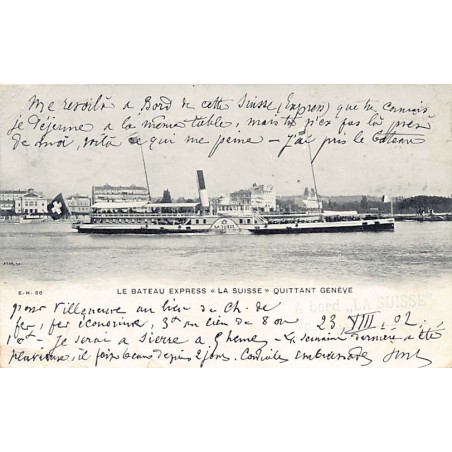 Me revoilà à Bord de cette Suisse (Express) que tu connais
je déjeune à la même table, mais tu n'es pas là près
de moi, voilà ce qui me peine - J'ai pris le bateau
LA SUISSE
E. H. 86
LE BATEAU EXPRESS « LA SUISSE » QUITTANT GENÈVE
A bord "LA SUISSE"
pour Villeneuve au lieu de Ch. de
fer, par économie, 3 au lieu de 8 ou 23 VIII. 02.
Je serai à Sierre à 6 heures - La semaine dernière a été
pluvieuse, il fait beau depuis 2 jours. Cordiales embrassades